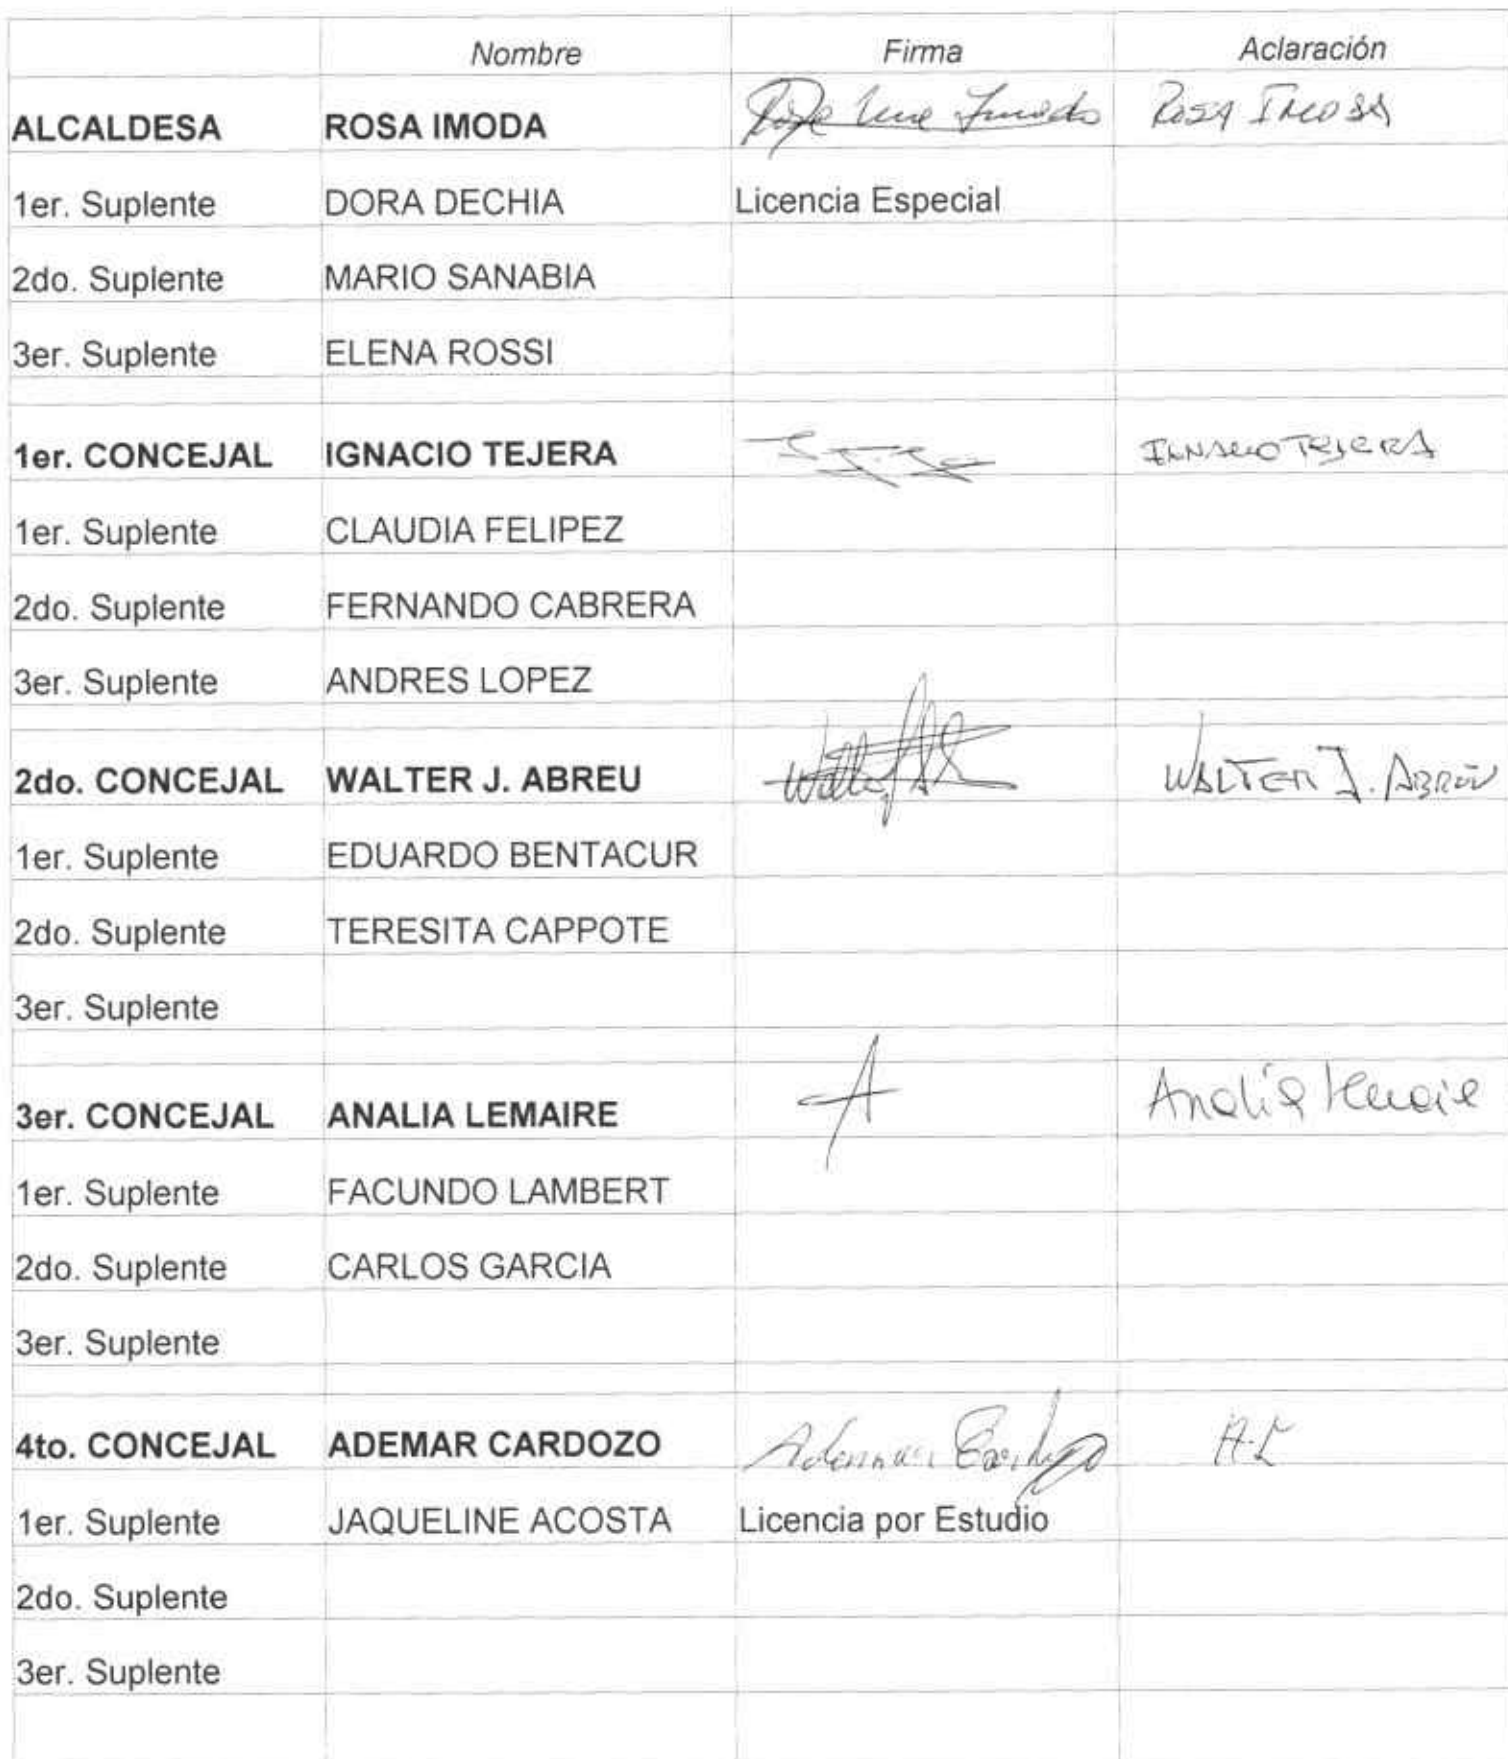 Nombre Firma Aclaración
ALCALDESA ROSA IMODA ROSA IMODA
1er. Suplente DORA DECHIA Licencia Especial
2do. Suplente MARIO SANABIA
3er. Suplente ELENA ROSSI
1er. CONCEJAL IGNACIO TEJERA IGNACIO TEJERA
1er. Suplente CLAUDIA FELIPEZ
2do. Suplente FERNANDO CABRERA
3er. Suplente ANDRES LOPEZ
2do. CONCEJAL WALTER J. ABREU WALTER J. ABREU
1er. Suplente EDUARDO BENTACUR
2do. Suplente TERESITA CAPPOTE
3er. Suplente
3er. CONCEJAL ANALIA LEMAIRE A Analia
1er. Suplente FACUNDO LAMBERT
2do. Suplente CARLOS GARCIA
3er. Suplente
4to. CONCEJAL ADEMAR CARDOZO Ademar Cardozo A.C
1er. Suplente JAQUELINE ACOSTA Licencia por Estudio
2do. Suplente
3er. Suplente